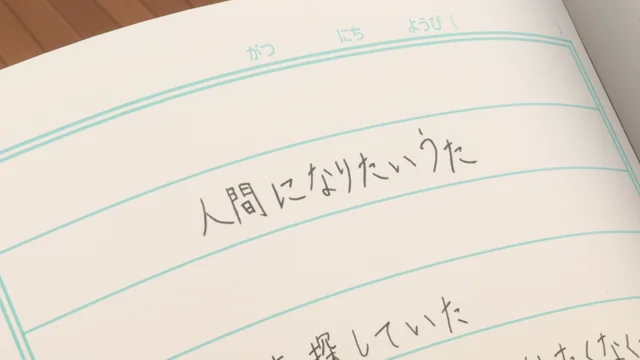 がつ にち ようび( )
人間になりたいうた
探していた
たくなく